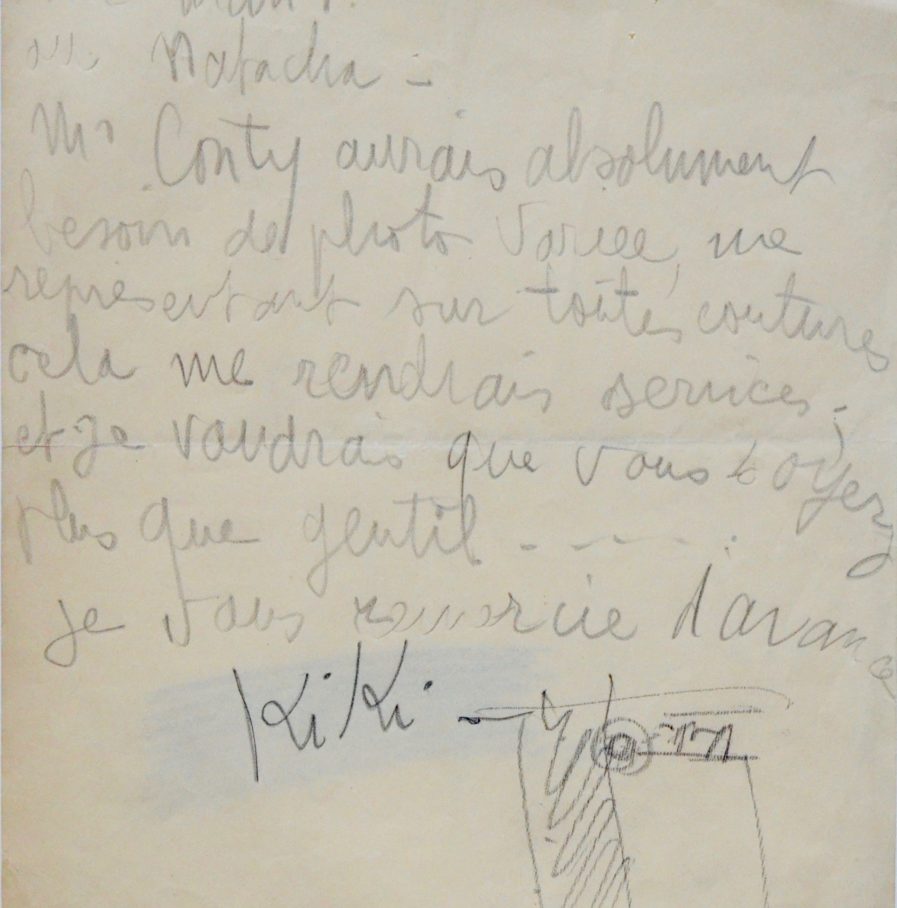 Natacha -
Mr Conty aurais absolument
besoin de photo variee, me
représentant sur toutes coutures
cela me rendrais services.
et je voudrais que vous soyez
plus que gentil - - - - .
je vous remercie d'avance
KiKi -